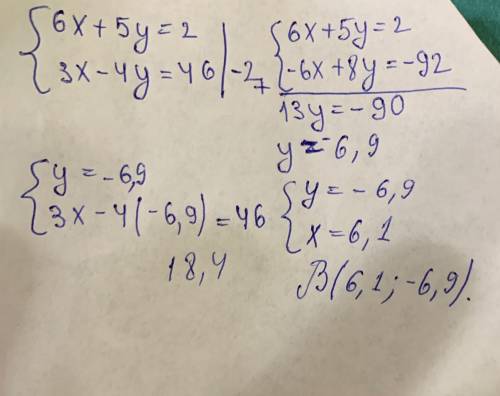 {6x+5y=2
3x-4y=46|-2
+{6x+5y=2
-6x+8y=-92
13y=-90
y=-6,9
{y=-6,9
3x-4(-6,9)=46
18,4
{y=-6,9
x=6,1
B(6,1;-6,9).